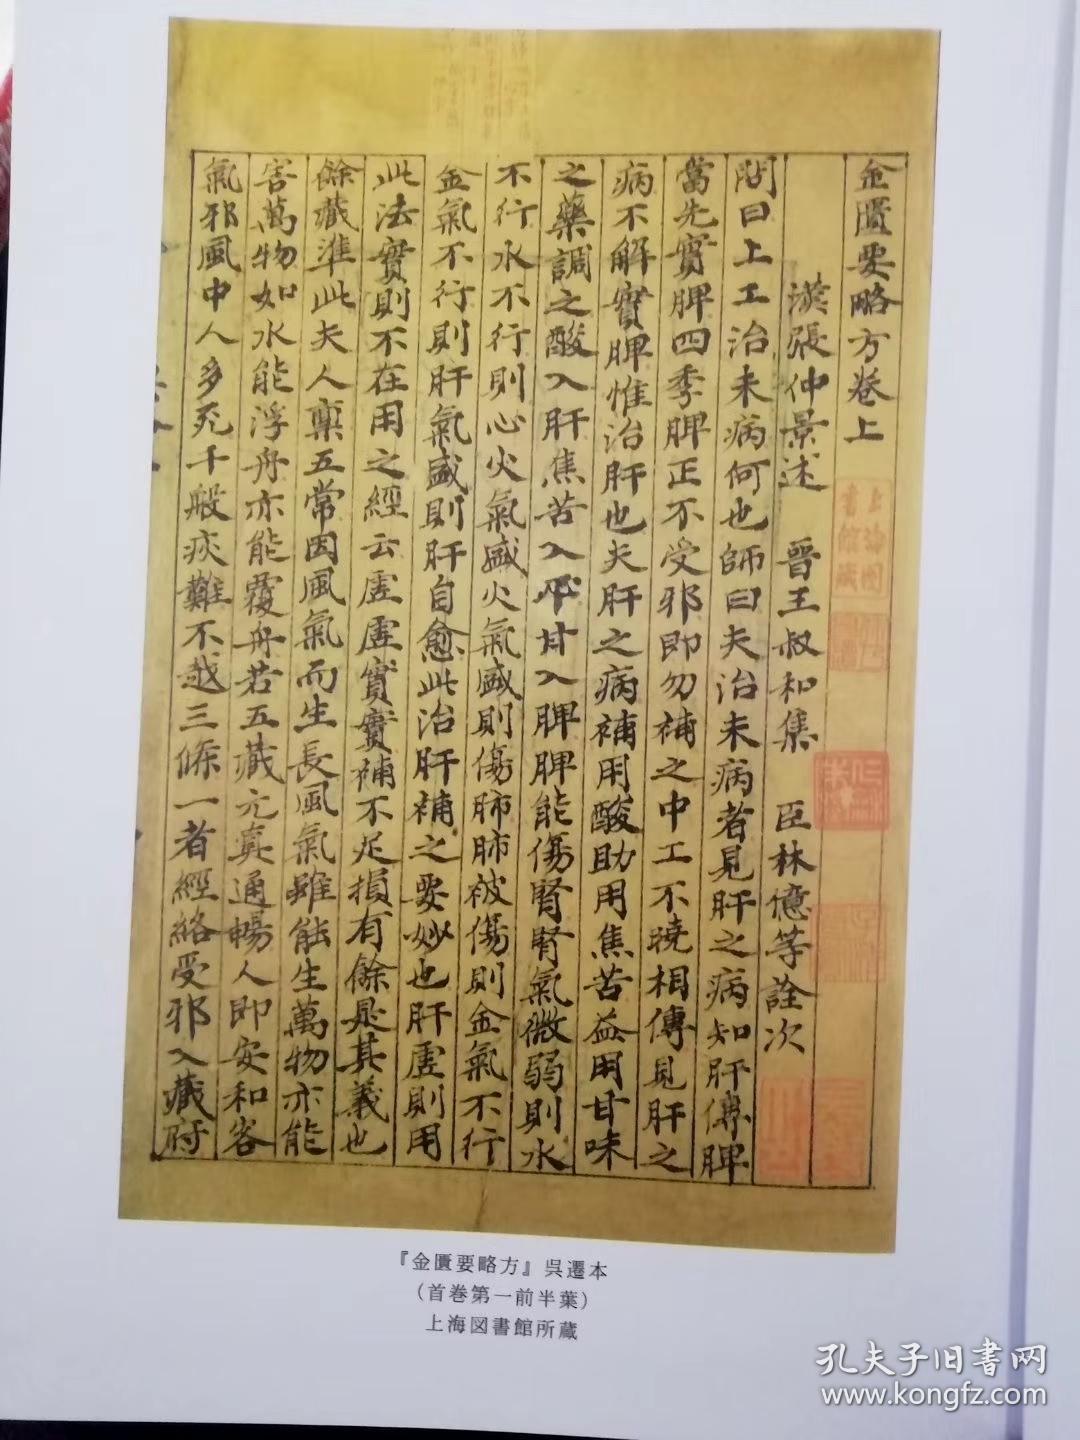 金匱要略方卷上
漢張仲景述　晉王叔和集　臣林億等詮次
問曰上工治未病何也師曰夫治未病者見肝之病知肝傳脾
當先實脾四季脾正不受邪即勿補之中工不曉相傳見肝之
病不解實脾惟治肝也夫肝之病補用酸助用焦苦益用甘味
之藥調之酸入肝焦苦入心甘入脾脾能傷腎腎氣微弱則水
不行水不行則心火氣盛火氣盛則傷肺肺被傷則金氣不行
金氣不行則肝氣盛則肝自愈此治肝補之要妙也肝虛則用
此法實則不在用之經云虛虛實實補不足損有餘是其義也
餘藏準此夫人稟五常因風氣而生長風氣雖能生萬物亦能
害萬物如水能浮舟亦能覆舟若五藏元真通暢人即安和客
氣邪風中人多死千般疢難不越三條一者經絡受邪入藏府
上海圖書館藏
『金匱要略方』呉遷本
(首巻第一前半葉)
上海図書館所蔵
孔夫子旧書网
www.kongfz.com